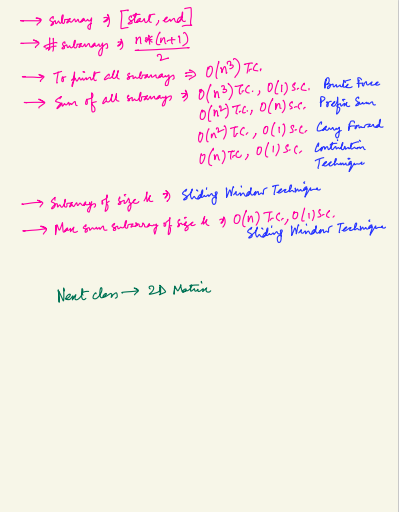 → Subarray ⇒ [start, end]
→ # subarrays ⇒ n*(n+1)/2
→ To print all subarrays ⇒ O(n³) T.C.
→ Sum of all subarrays ⇒ O(n³) T.C., O(1) S.C. Brute Force
O(n²) T.C, O(n) S.C. Prefix Sum
O(n²) T.C., O(1) S.C. Carry Forward
O(n) T.C, O(1) S.C. Contribution
Technique
→ Subarrays of size k ⇒ Sliding Window Technique
→ Max sum subarray of size k ⇒ O(n) T.C., O(1) S.C.
Sliding Window Technique
Next class → 2D Matrix